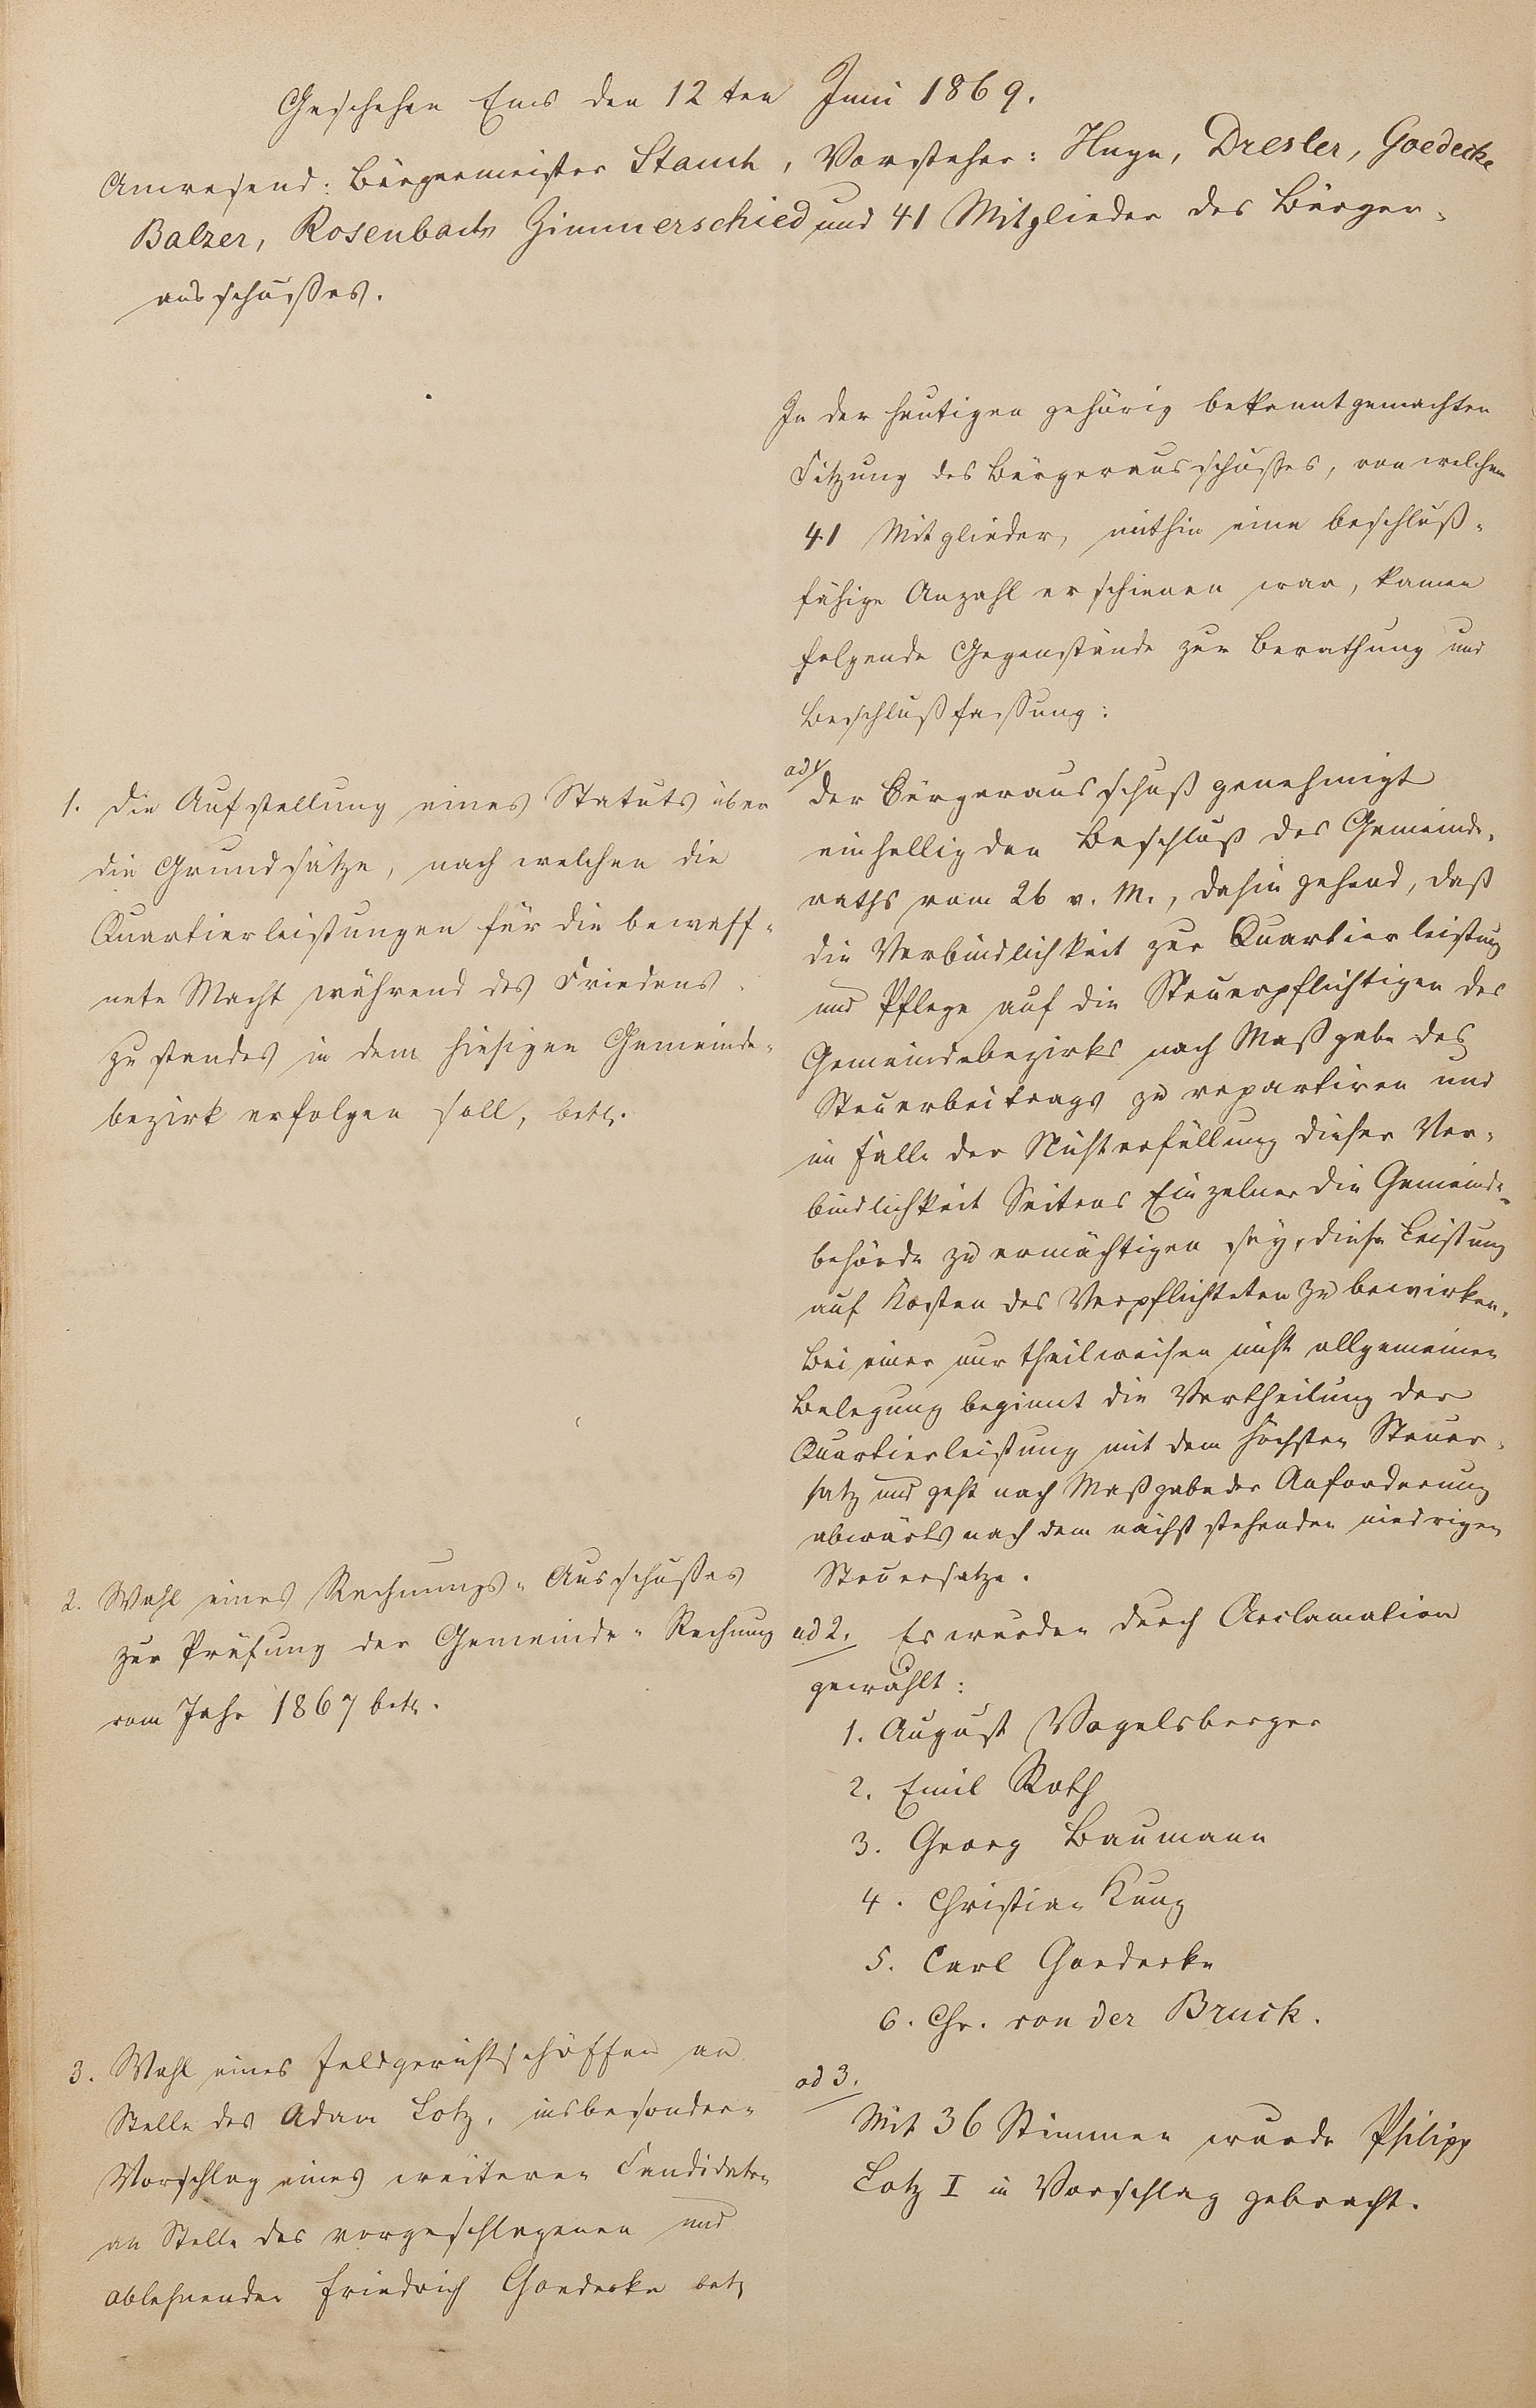 Geschehen Ems den 12ten Juni 1869.
Anwesend: Bürgermeister Stauch, Vorsteher: Huyn, Dresler, Goedecke
Balzer, Rosenbach Zimmerschied und 41 Mitglieder des Bürger-
ausschußes.
In der heutigen gehörig bekannt gemachten
Sitzung des Bürgerausschußes, von welchem
41 Mitglieder, mithin eine beschluß-
fähige Anzahl erschienen war, kamen
folgende Gegenstände zur Berathung und
Beschlußfassung:
1. Die Aufstellung eines Statuts über
die Grundsätze, nach welchen die
Quartierleistungen für die bewaff-
nete Macht während des Friedens-
zustandes in dem hiesigen Gemeinde-
bezirk erfolgen soll, betr.
ad 1/
Der Bürgerausschuß genehmigt
einhellig den Beschluß des Gemeinde-
raths vom 26 v. M., dahin gehend, daß
die Verbindlichkeit zur Quartierleistung
und Pflege auf die Steuerpflichtigen des
Gemeindebezirks nach Maßgabe des
Steuerbeitrags zu repartiren und
im Falle der Nichterfüllung dieser Ver-
bindlichkeit Seitens Einzelner die Gemeinde-
behörde zu ermächtigen sey, diese Leistung
auf Kosten des Verpflichteten zu bewirken.
Bei einer nur theilweisen nicht allgemeinen
Belegung beginnt die Vertheilung der
Quartierleistung mit dem höchsten Steuer-
satz und geht nach Maßgabe der Anforderung
abwärts nach dem nächst stehenden niedrigen
Steuersatze.
2. Wahl eines Rechnungs-Ausschußes
zur Prüfung der Gemeinde-Rechnung
vom Jahr 1867 betr.
ad 2. Es wurden durch Acclamation
gewählt:
1. August Vogelsberger
2. Emil Roth
3. Georg Baumann
4. Christian Kunz
5. Carl Goedecke
6. Chr. von der Bruck.
3. Wahl eines Feldgerichtschöffen an
Stelle des Adam Lotz, insbesondere
Vorschlag eines weiteren Candidaten
an Stelle des vorgeschlagenen und
ablehnenden Friedrich Goedecke betr
ad 3.
Mit 36 Stimmen wurde Philipp
Lotz I in Vorschlag gebracht.